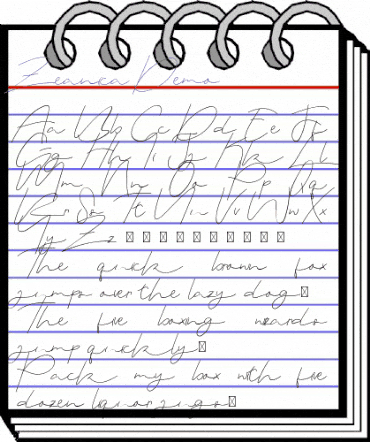 Zeanica Demo
Aa Bb Cc Dd Ee Ff
Gg Hh Ii Jj Kk Ll
Mm Nn Oo Pp Qq
Rr Ss Tt Uu Vv Ww Xx
Yy Zz
The quick brown fox
jumps over the lazy dog
The five boxing wizards
jump quickly
Pack my box with five
dozen liquor jugs